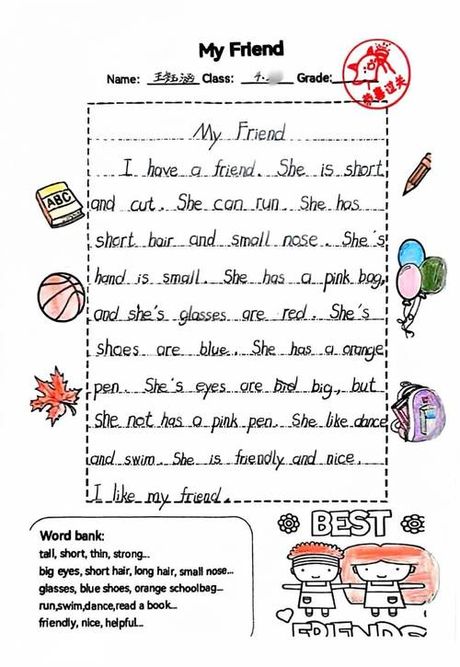 My Friend
Name: 王钰涵 Class: 4. Grade:
荣喜过关
My Friend
I have a friend. She is short
and cut. She can run. She has
short hair and small nose. She's
hand is small. She has a pink bag,
and she's glasses are red. She's
shoes are blue. She has a orange
pen. She's eyes are big, but
She not has a pink pen. She like dance
and swim. She is friendly and nice.
I like my friend.
ABC
Word bank:
tall, short, thin, strong...
big eyes, short hair, long hair, small nose...
glasses, blue shoes, orange schoolbag...
run,swim,dance,read a book...
friendly, nice, helpful...
BEST
FRIENDS